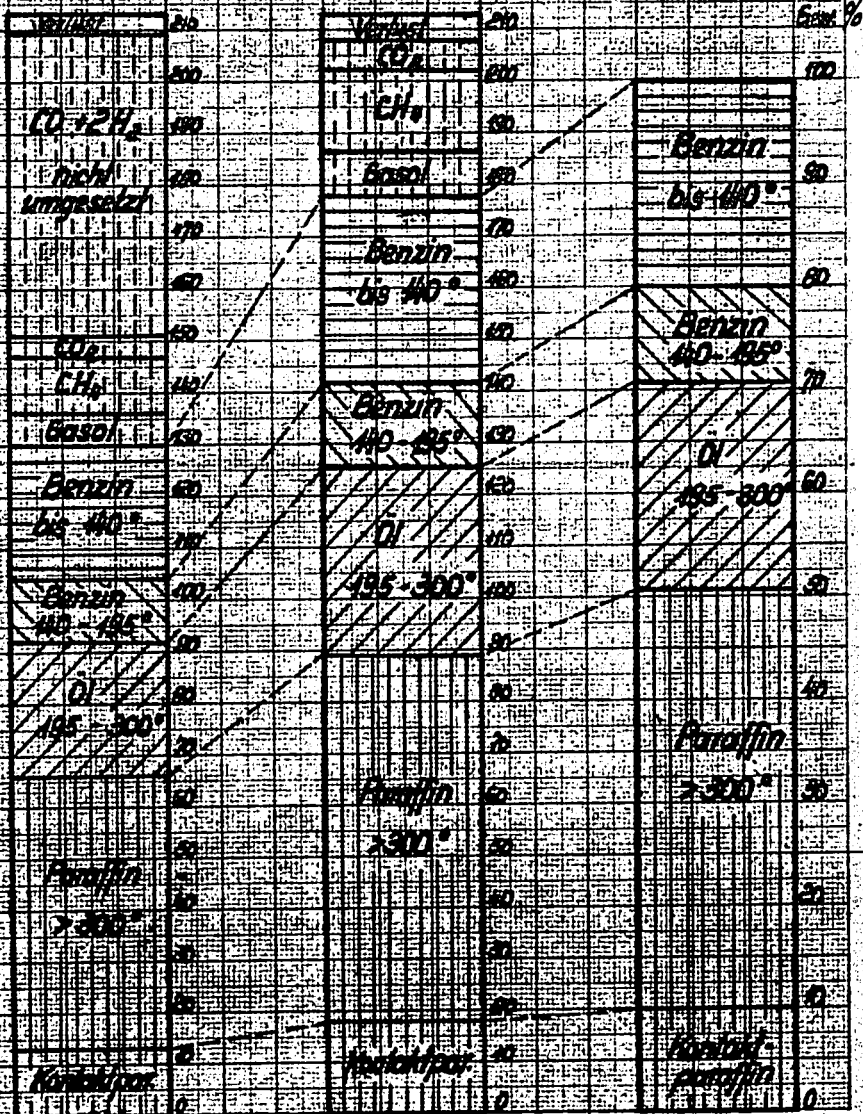 Verlust
CO + 2H₂
nicht
umgesetzt
CO₂
CH₄
Gasol
Benzin
bis 140°
Benzin
140-195°
Öl
195-300°
Paraffin
>300°
Kontaktpar.
210
200
190
180
170
160
150
140
130
120
110
100
90
80
70
60
50
40
30
20
10
0
Verlust
CO₂
CH₄
Gasol
Benzin
bis 140°
Benzin
140-195°
Öl
195-300°
Paraffin
>300°
Kontaktpar.
210
200
190
180
170
160
150
140
130
120
110
100
90
80
70
60
50
40
30
20
10
0
Gew. %
Benzin
bis 140°
Benzin
140-195°
Öl
195-300°
Paraffin
>300°
Kontakt-
paraffin
100
90
80
70
60
50
40
30
20
10
0